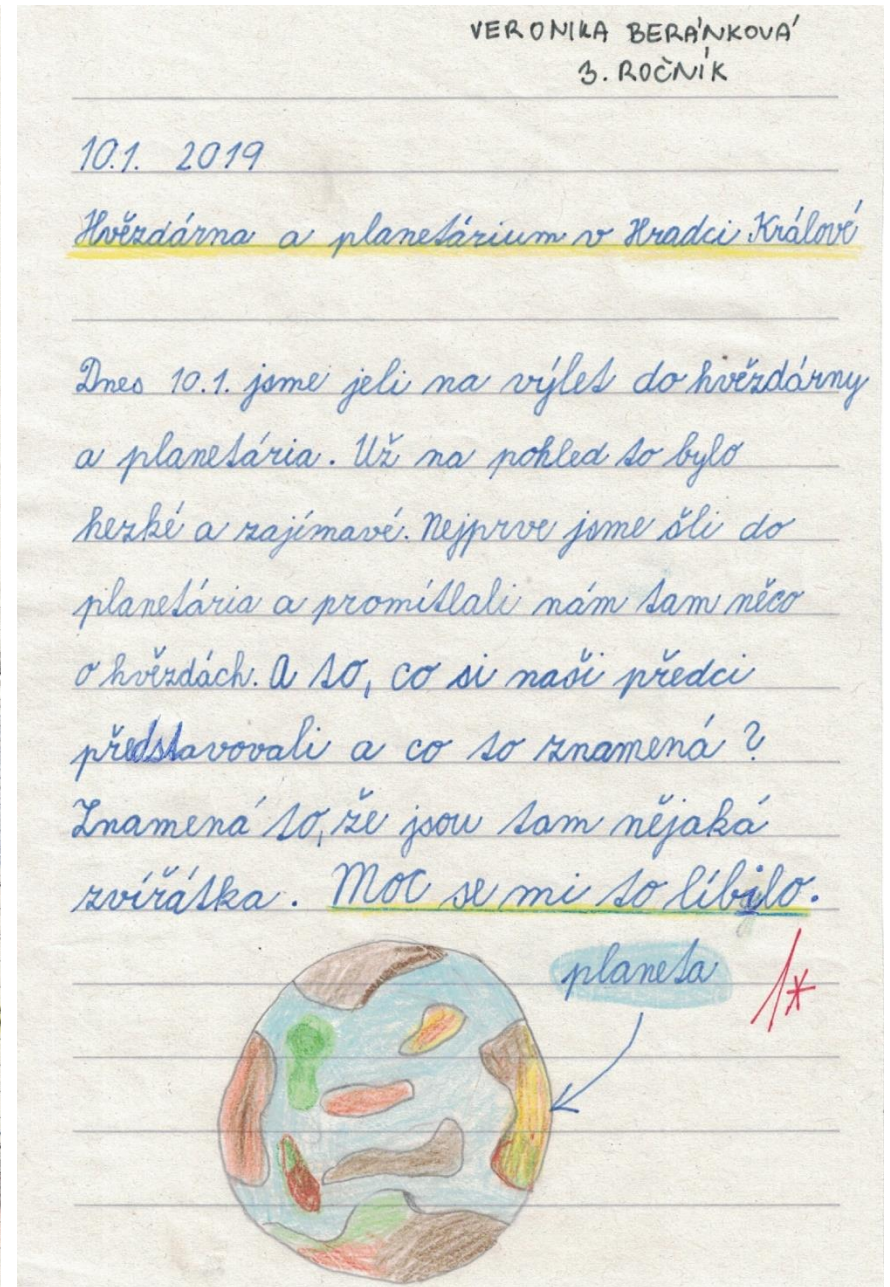 VERONIKA BERÁNKOVÁ
3. ROČNÍK
10.1. 2019
Hvězdárna a planetárium v Hradci Králové
Dnes 10.1. jsme jeli na výlet do hvězdárny
a planetária. Už na pohled to bylo
hezké a zajímavé. Nejprve jsme šli do
planetária a promítlali nám tam něco
o hvězdách. A to, co si naši předci
představovali a co to znamená?
Znamená to, že jsou tam nějaká
zvířátka. Moc se mi to líbilo.
planeta
1*